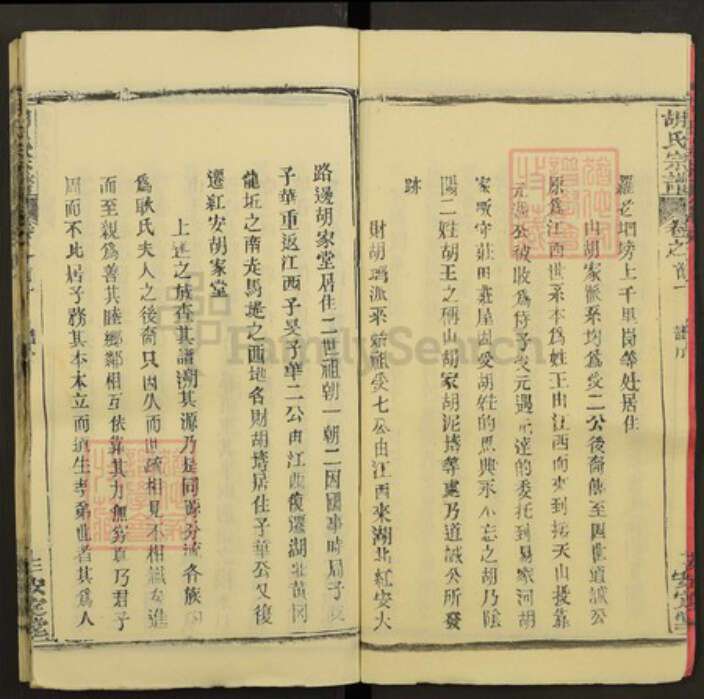 胡氏宗譜
卷之首
譜序
安定堂
羅老塆塝上千里崗等处居住
山胡家派系均為受二公後裔傳至四世道誠公
原為江西世系本為姓王由江西而來到 天山投靠
元 公被收為侍子 元遇 達的委托到易家河胡
家 守莊田莊屋因受胡姓的恩典永不忘之胡乃
陽二姓胡王之稱山胡家胡泥塝等處乃道誠公所發
跡
財胡塆派系 祖受七公由江西來湖北紅安大
路邊胡家堂居住二世祖朝一朝二因國事時局子
子華重返江西子昊子華二公由江西復遷湖北黄岡
龍坵之南走馬堤之西地名財胡塆居住子華公又復
遷紅安胡家堂
上述之族查其譜溯其源乃是同源分流各族
為耿氏夫人之後裔只因久而世疏相見不相識
而至親為善其睦鄉鄰相互依靠其力無窮真乃君子
周而不比居子務其本本立而道生孝弟也者其為人
FamilySearch